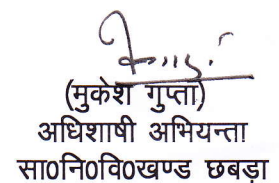 (मुकेश गुप्ता)
अधिशाषी अभियन्ता
सा0नि0वि0खण्ड छबड़ा